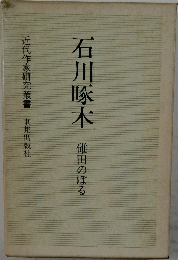 石川啄木
碓田のぼる
近代作家研究叢書
東邦出版社